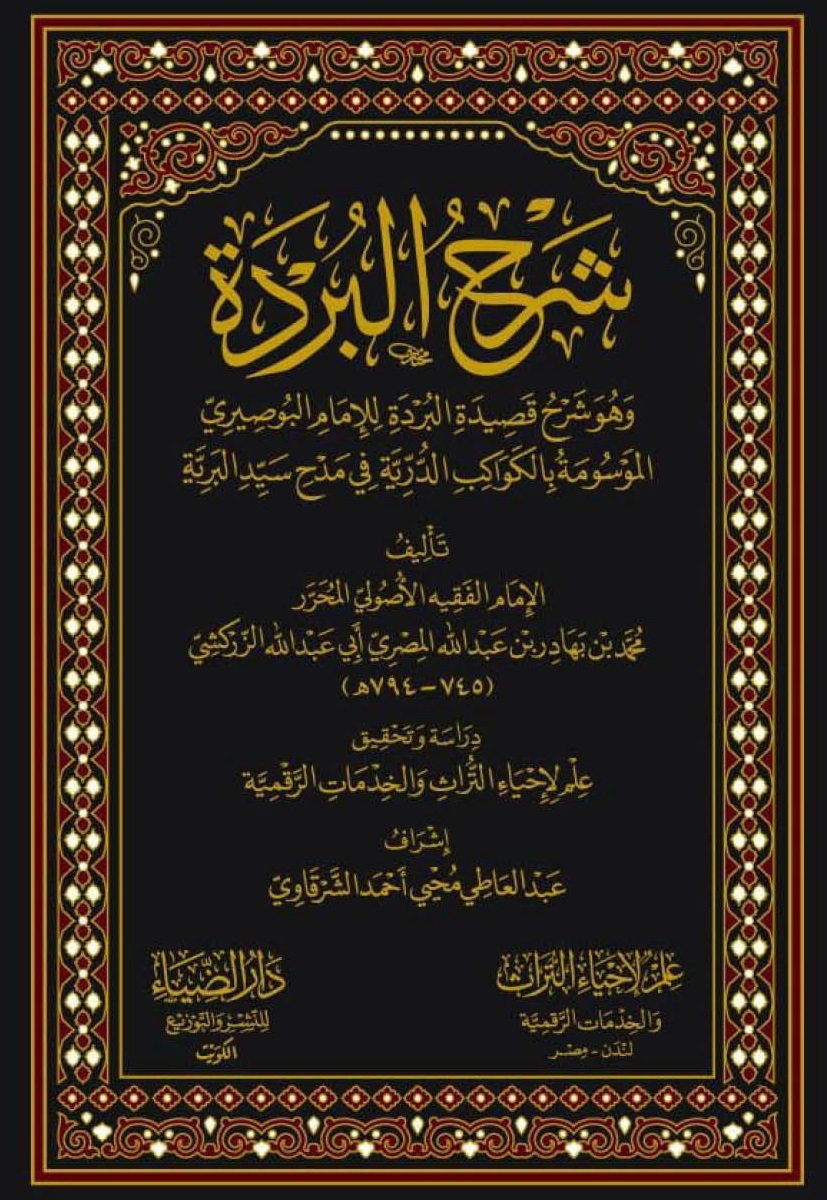 شَرْحُ البُرْدَة
وَهُوَ شَرْحُ قَصِيدَةِ البُرْدَةِ لِلإِمَامِ البُوصِيرِيّ
المَوْسُومَةُ بِالكَوَاكِبِ الدُّرِّيَّةِ فِي مَدْحِ سَيِّدِ البَرِيَّةِ
تَأْلِيفُ
الإِمَام الفَقِيه الأُصُولِيّ المُحَرِّر
مُحَمَّد بْن بَهَادِر بْن عَبْدالله المِصْرِيّ أَبِي عَبْدالله الزَّرْكَشِيّ
(٧٤٥ - ٧٩٤هـ)
دِرَاسَة وَتَحْقِيق
عِلْم لِإِحْيَاءِ التُّرَاثِ وَالخِدْمَاتِ الرَّقْمِيَّة
إِشْرَافُ
عَبْد العَاطِي مُحْيِي أَحْمَد الشَّرْقَاوِيّ
عِلْم لِإِحْيَاءِ التُّرَاث
وَالخِدْمَات الرَّقْمِيَّة
لَنْدَن - مِصْر
دَارُ الضِّيَاءِ
لِلنَّشْرِ وَالتَّوْزِيعِ
الكُوَيْت